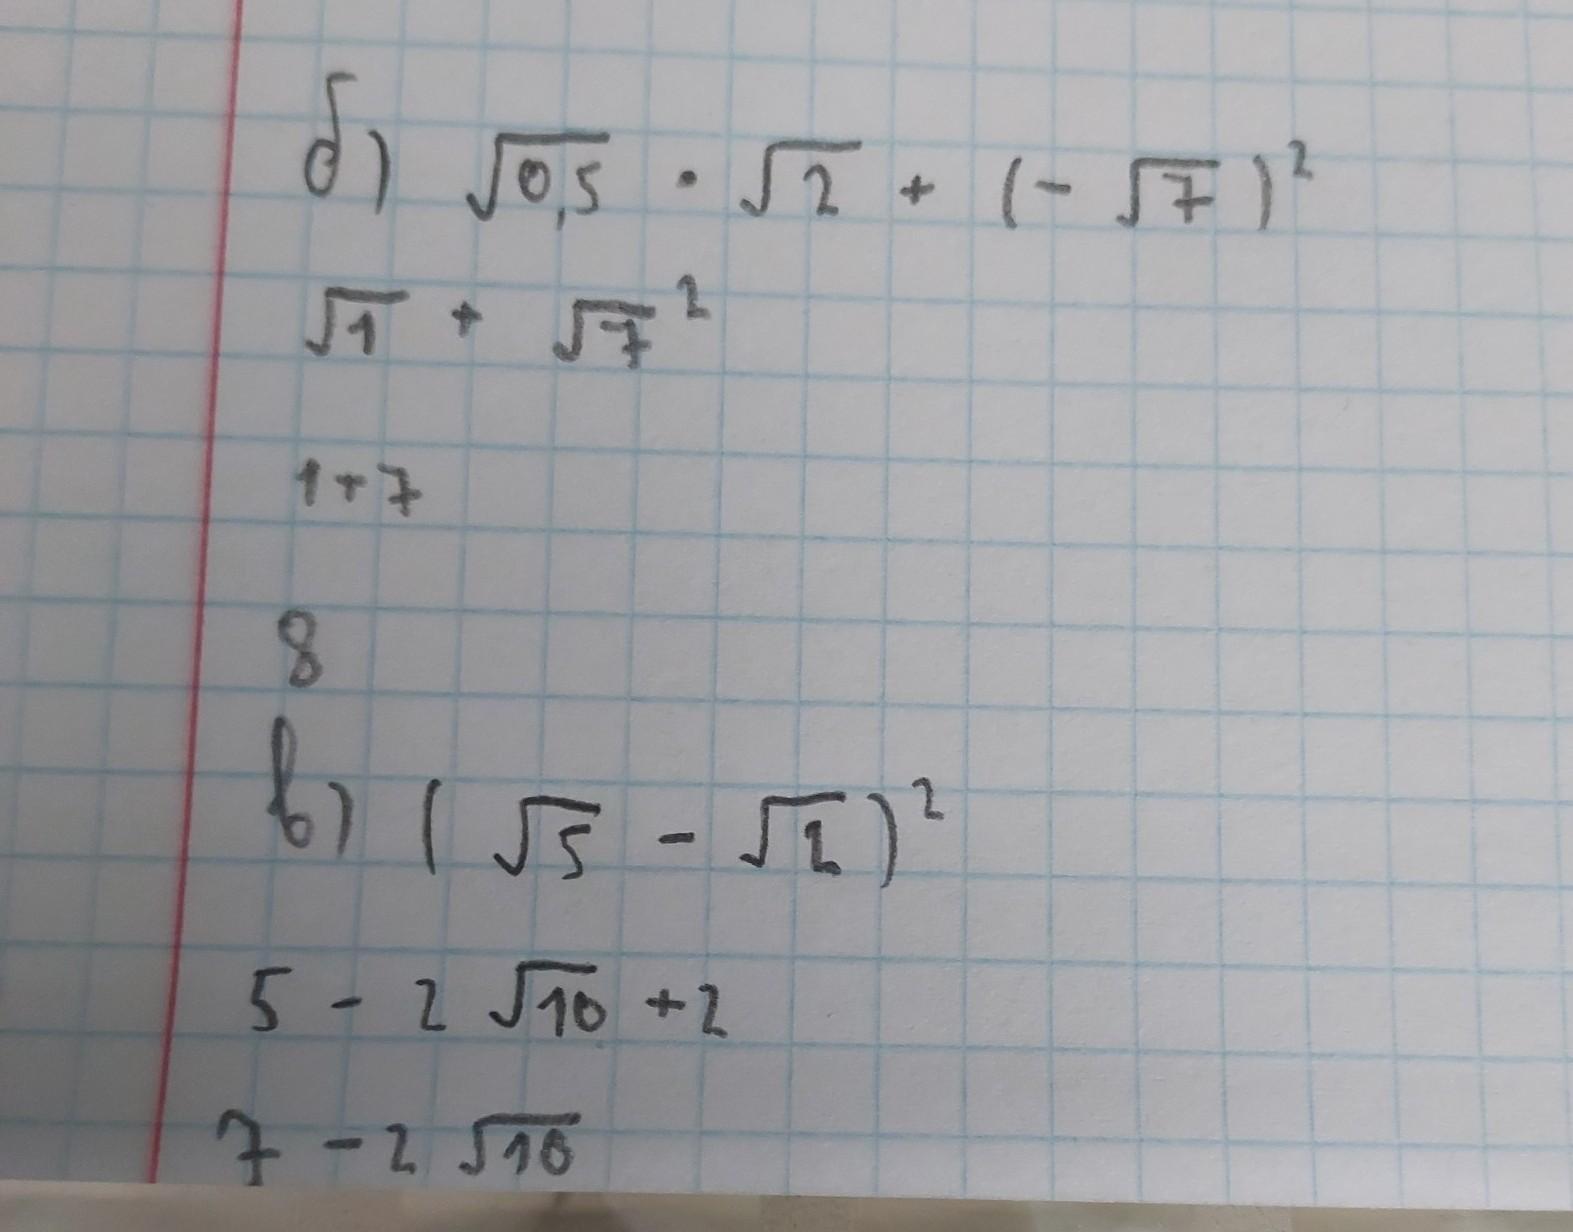 б) √0,5 · √2 + (-√7)²
√1 + √7²
1+7
8
в) (√5 - √2)²
5 - 2√10 +2
7 - 2√10